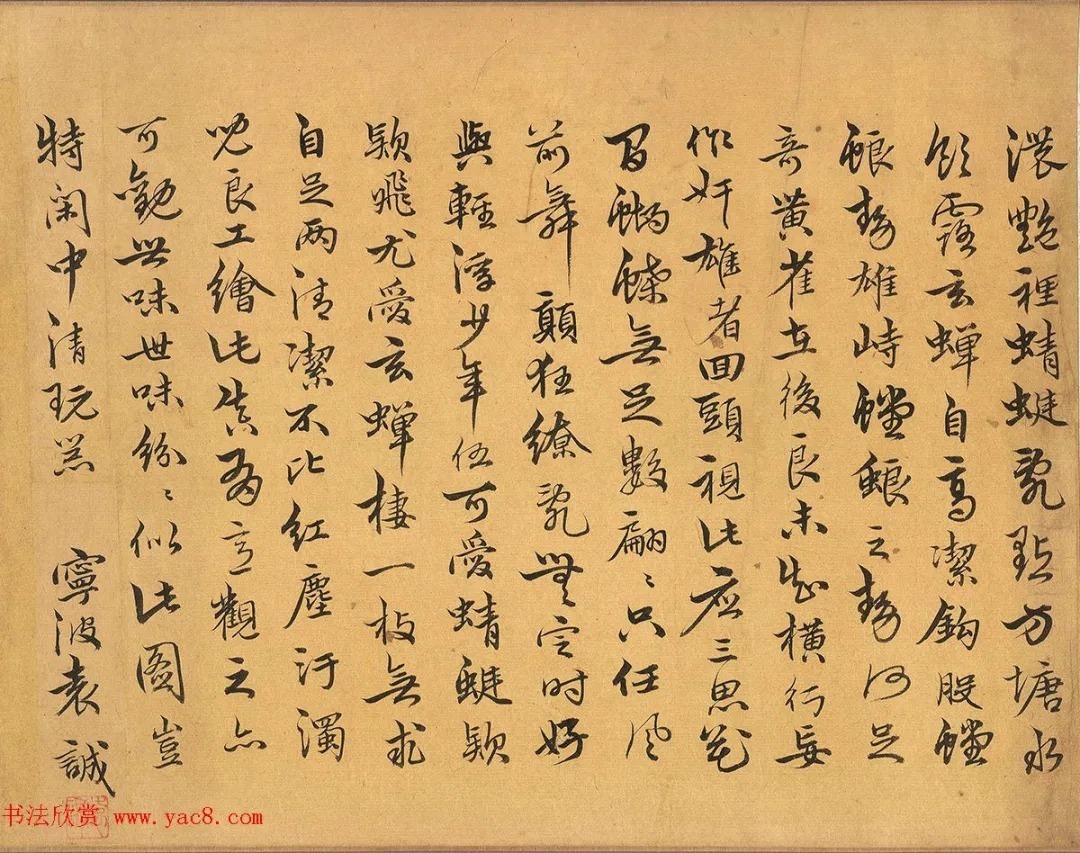 濃艷裡蜻蜓亂點方塘水
飲露玄蟬自高潔鈎股螳
螂勢雄峙螳螂之勢何足
奇黃雀在後良未知橫行妄
作奸雄者回頭視此應三思花
間蝴蝶無足數翩〻只任風
前舞顛狂繚亂無定時好
與輕浮少年伍可愛蜻蜓款
款飛尤愛玄蟬棲一枝無求
自足兩清潔不比紅塵汙濁
兒良工繪此真有意觀之亦
可觀世味世味紛〻似此圖豈
特閑中清玩器 寧波袁誠
书法欣赏 www.yac8.com